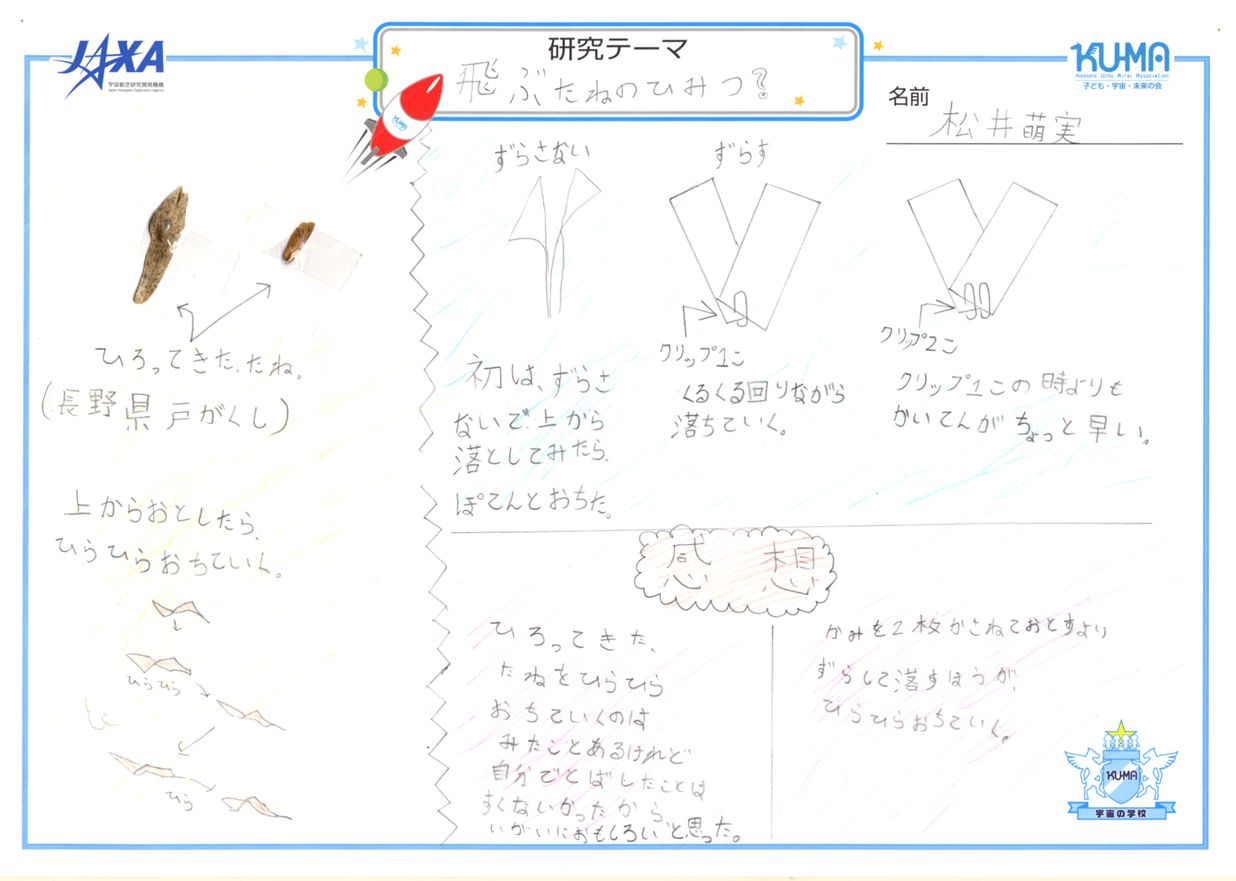 JAXA
宇宙航空研究開発機構
Japan Aerospace Exploration Agency
研究テーマ
飛ぶたねのひみつ?
KUMA
KUMA
Kodomo Uchu Mirai Association
子ども・宇宙・未来の会
名前
松井萌実
ひろってきた、たね。
(長野県戸がくし)
上からおとしたら、
ひらひらおちていく。
ひらひら
ひら
ずらさない
初は、ずらさ
ないで、上から
落としてみたら、
ぽてんとおちた。
ずらす
クリップ1こ
くるくる回りながら
落ちていく。
クリップ2こ
クリップ1この時よりも
かいてんがちょっと早い。
感想
ひろってきた、
たねをひらひら
おちていくのは
みたことあるけれど
自分でとばしたことは
すくないかったから、
いがいにおもしろいと思った。
かみを2枚かさねておとすより
ずらして落すほうが、
ひらひらおちていく。
KUMA
宇宙の学校